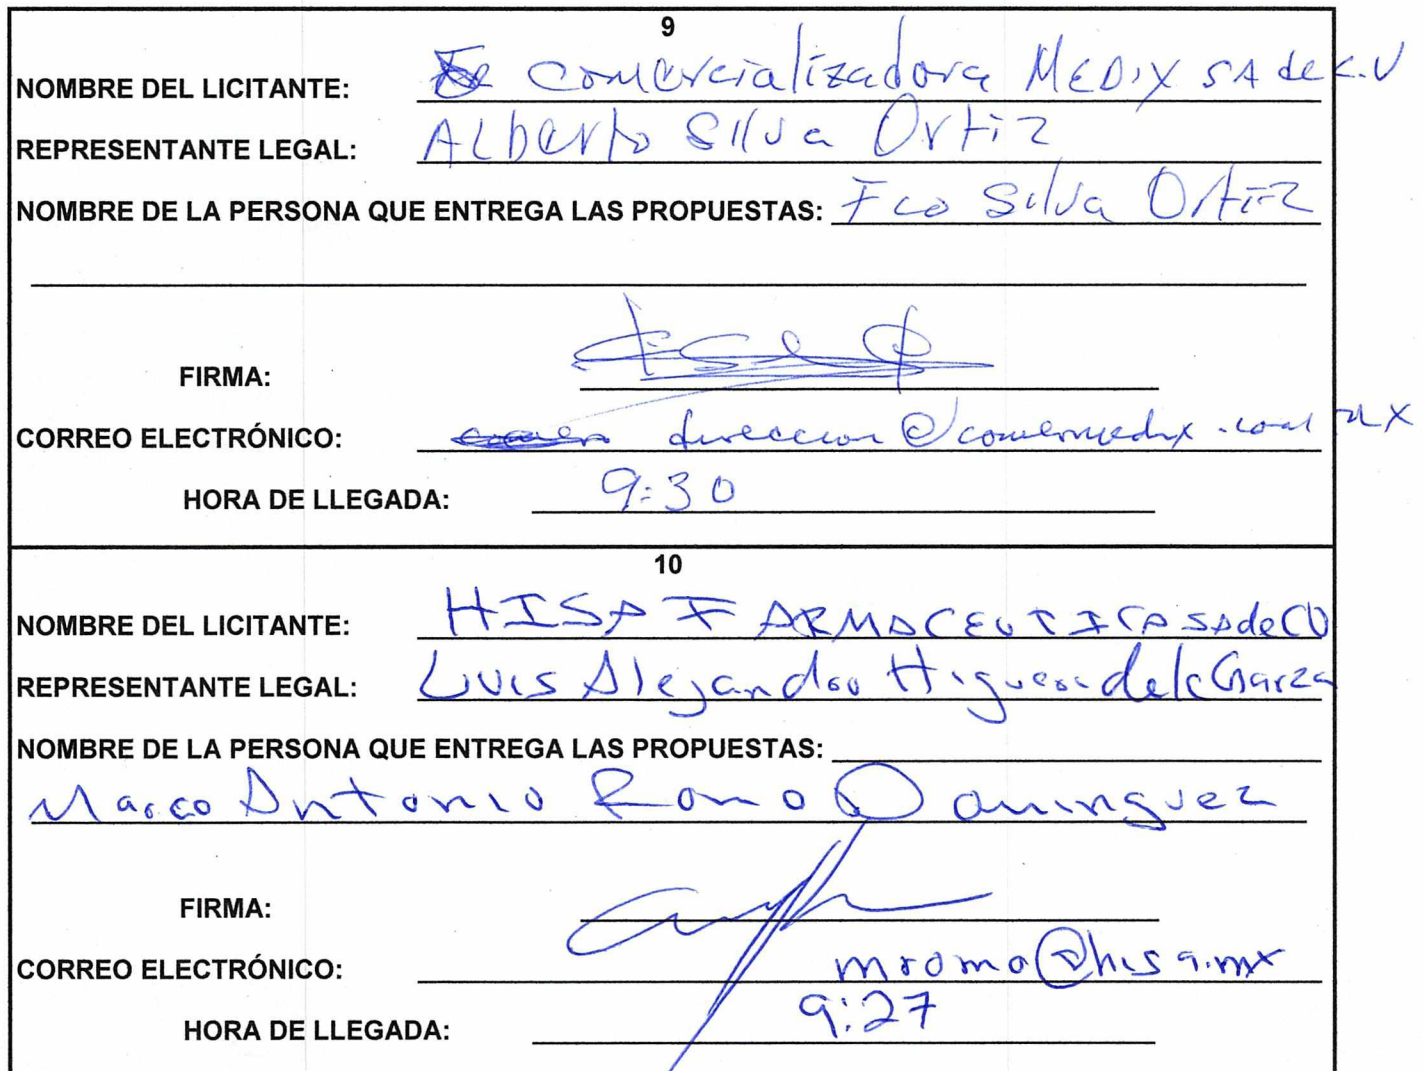 9
NOMBRE DEL LICITANTE: Comercializadora MEDIX SA de C.V
REPRESENTANTE LEGAL: ALberto Silva Ortiz
NOMBRE DE LA PERSONA QUE ENTREGA LAS PROPUESTAS: Fco Silva Ortiz
FIRMA:
CORREO ELECTRÓNICO: direccion@comermedix.com mx
HORA DE LLEGADA: 9:30
10
NOMBRE DEL LICITANTE: HISA FARMACEUTICA SA de CV
REPRESENTANTE LEGAL: Luis Alejandro Higuera de la Garza
NOMBRE DE LA PERSONA QUE ENTREGA LAS PROPUESTAS:
Marco Antonio Romo Dominguez
FIRMA:
CORREO ELECTRÓNICO: mromo@hisa.mx
HORA DE LLEGADA: 9:27